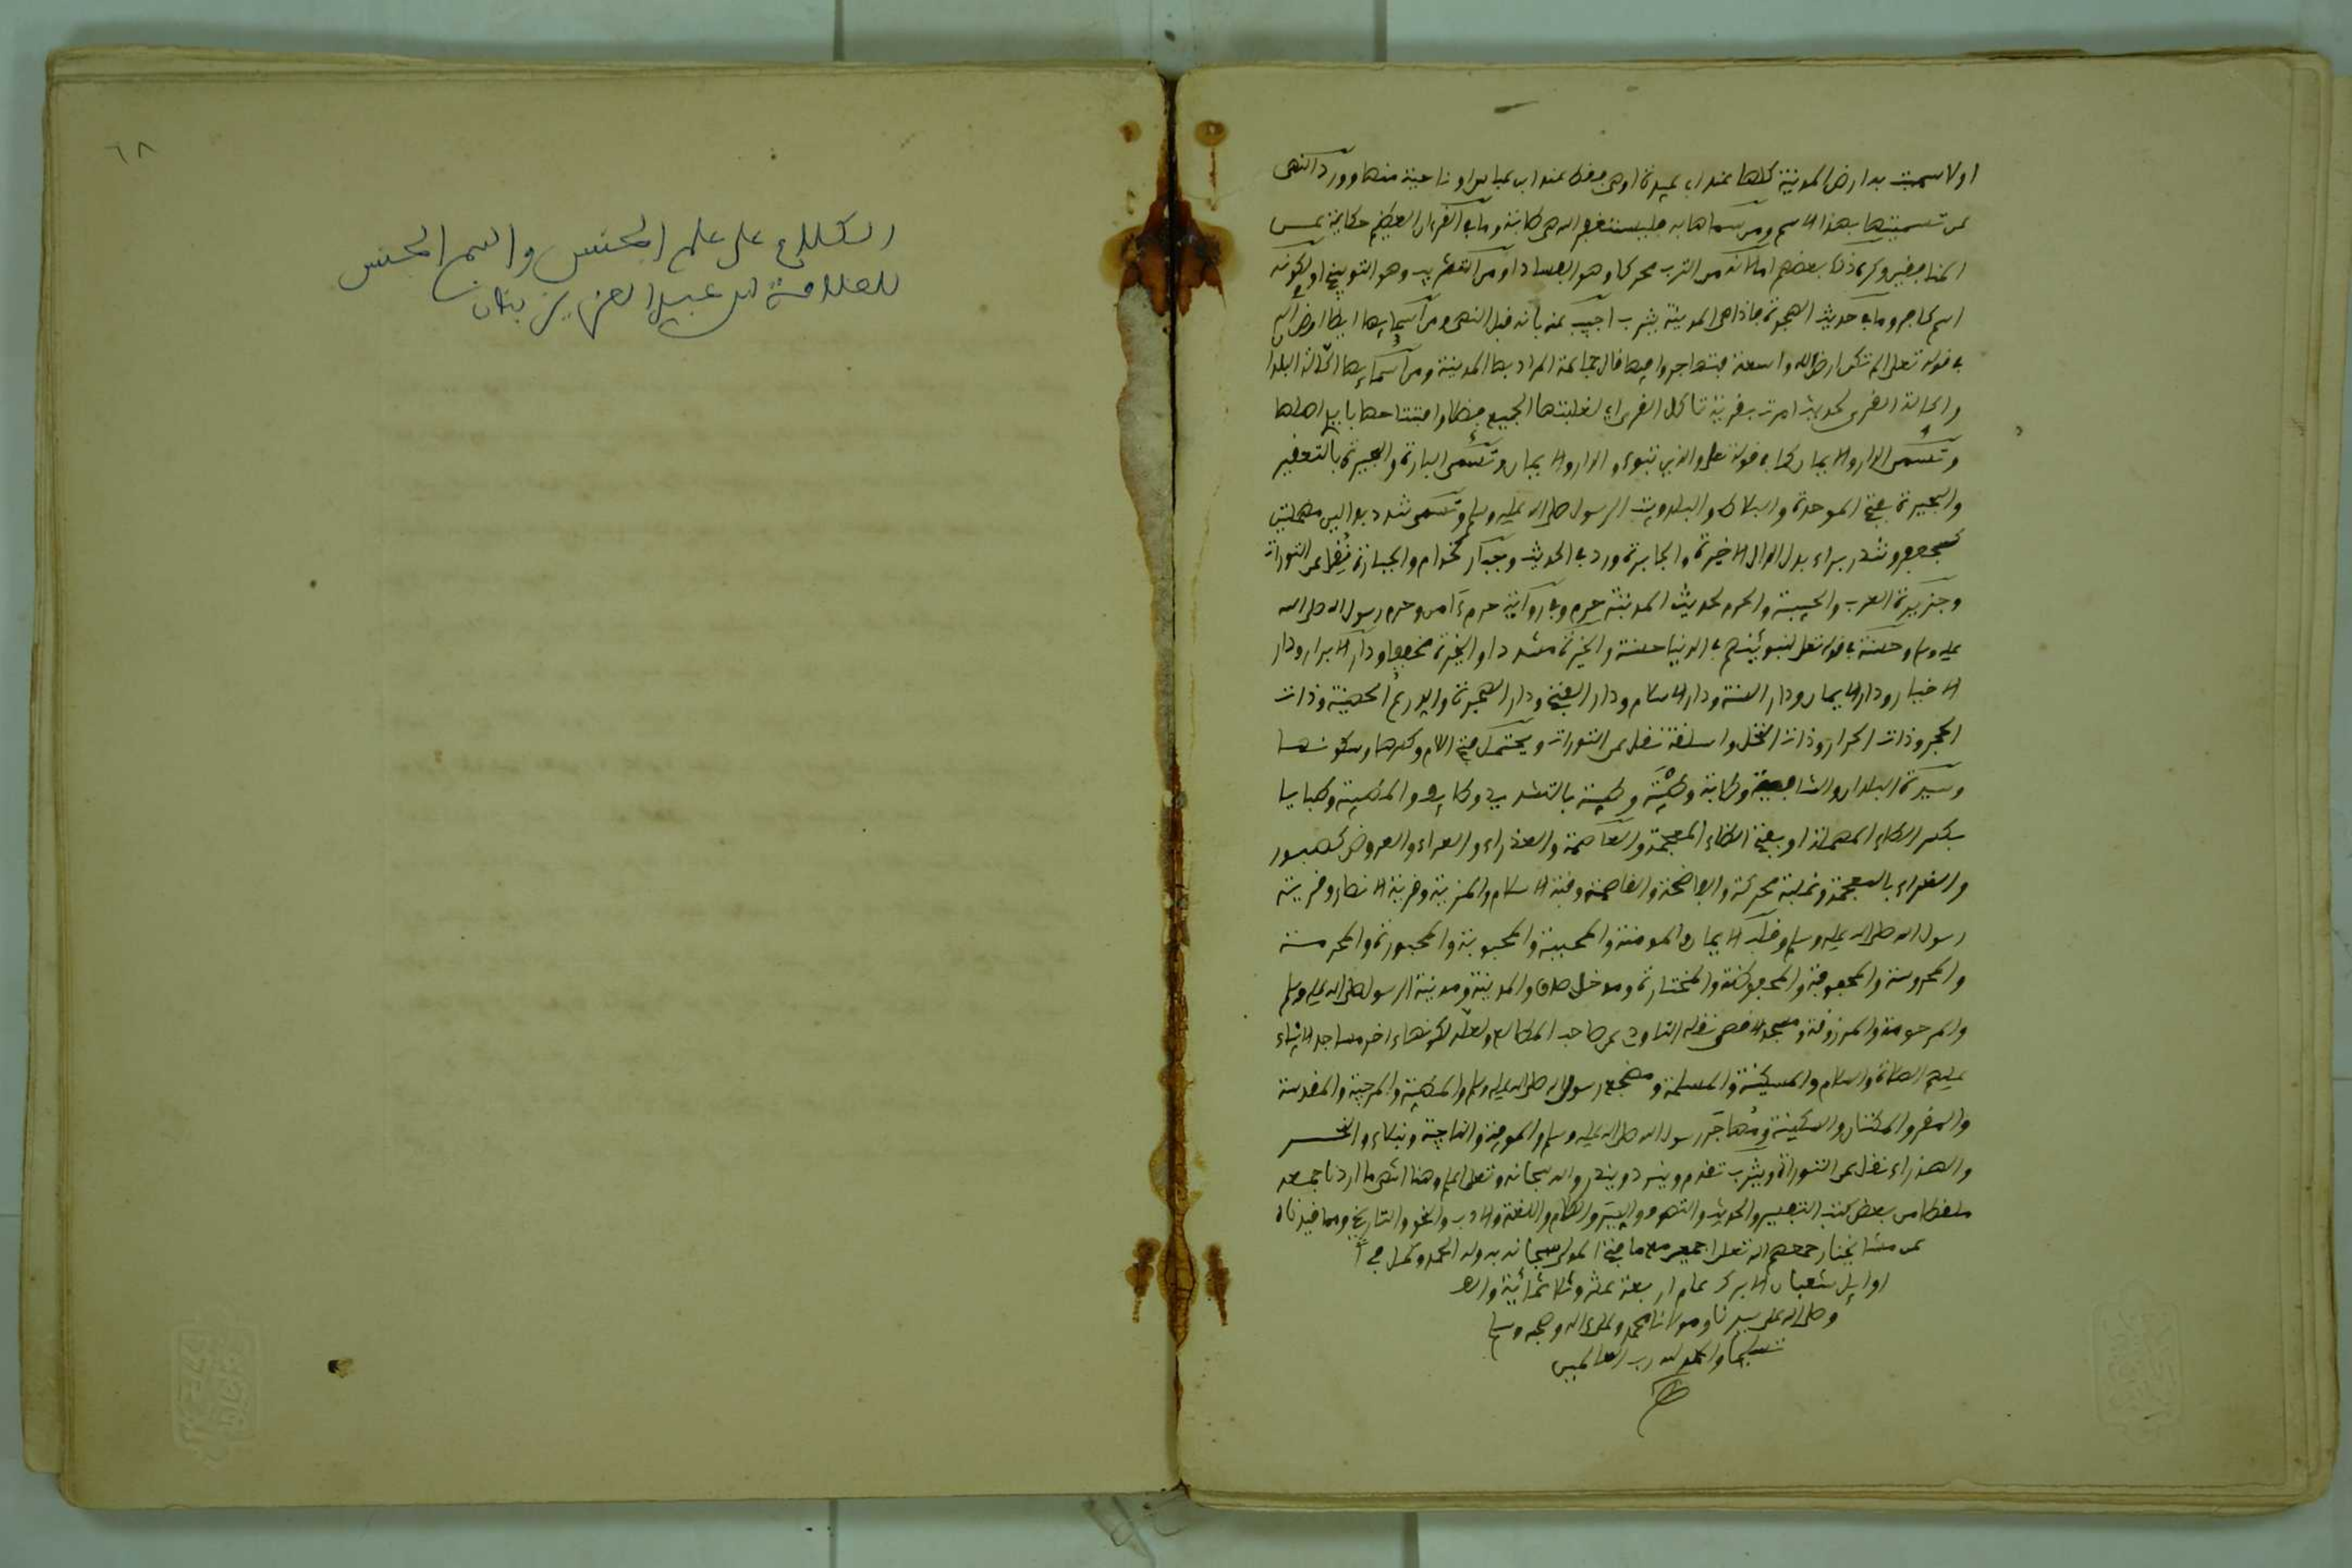 اولا سميت به ارض المدينة كلها عند ابي عبيدة او هي فقط عند ابن عباس او ناحية منها وورد النهى
عن تسميتها بهذا الاسم ومن سماها به فليستغفر الله هي طابة وما في القرءان العظيم حكاية عن
المنافقين وكره ذلك بعضهم اما لانه من الثرب محركا وهو الفساد او من التثريب وهو التوبيخ او لكونه
اسم كافر وما في حديث الهجرة فاذا هي المدينة يثرب اجيب عنه بانه قبل النهى ومن اسمايها ايضا ارض الله
في قوله تعلى الم تكن ارض الله واسعة فتهاجروا فيها قال جماعة المراد بها المدينة ومن اسمائها اكالة البلدان
واكالة القرى لحديث امرت بقرية تاكل القرى اي لغلبتها الجميع فضلا وافتتاحها بايدي اهلها
وتسمى الدار والايمان كما في قوله تعلى والذين تبوءو الدار والايمان وتسمى البارة والبحيرة بالتصغير
والبحيرة بفتح الموحدة والبلاط والبلد وبيت الرسول صلى الله عليه وسلم وتسمى تندد بدالين مهملتين
كجعفر وتندر براء بدل الدال الاخيرة والجابرة ورد في الحديث وجبار كحذام والجبارة نقل عن التورات
وجزيرة العرب والحبيبة والحرم لحديث المدينة حرم وفي رواية حرم ءامن وحرم رسول الله صلى الله
عليه وسلم وحسنة في قوله تعلى لنبوئنهم في الدنيا حسنة والخيرة مشددا والخيرة مخففا ودار الابرار ودار
الاخيار ودار الايمان ودار السنة ودار السلام ودار الفتح ودار الهجرة والدرع الحصينة وذات
الحجر وذات الحرار وذات النخل واسلقة نقل عن التورات ويحتمل فتح اللام وكسرها وسكونها
وسيدة البلدان والشافية وطابة وطيبة وطيبة بالتشديد وطايب والمطيبة وظبابا
بكسر الطاء المهملة او بفتح الظاء المعجمة والعاصمة والعذراء والعراء والعروض كصبور
والغراء بالمعجمة وغلبة محركة والفاضحة والقاصمة وقبة الاسلام والقرية وقرية الانصار وقرية
رسول الله صلى الله عليه وسلم وقلب الايمان والمومنة والمحببة والمحبوبة والمحبورة والمحرمة
والمحروسة والمحفوفة والمحفوظة والمختارة ومدخل صدق والمدينة ومدينة الرسول صلى الله عليه وسلم
والمرحومة والمرزوقة ومسجد الاقصى نقله التاودي عن صاحب المطالع ولعله لكونها ءاخر مساجد الانبياء
عليهم الصلاة والسلام والمسكينة والمسلمة ومضجع رسول الله صلى الله عليه وسلم والمطيبة والمقدسة
والمقر والمكتان والمكينة ومهاجر رسول الله صلى الله عليه وسلم والموفية والناجية ونبلاء والنحر
والهذراء نقل عن التوراة ويثرب تقدم ويندد ويندر والله سبحانه وتعلى اعلم وهنا انتهى ما اردنا جمعه
ملفظا من بعض كتب التفسير والحديث والتصوف والسير والكلام واللغة والادب والنحو والتاريخ ومما قيدناه
عن مشايخنا رحمهم الله تعلى اجمعين مع ما فتح المولى سبحانه به وله الحمد وكمل في
اوايل شعبان الابرك عام اربعة عشر وثلاثمائة والف
وصلى الله على سيدنا ومولانا محمد وعلى ءاله وصحبه وسلم
تسليما والحمد لله رب العالمين
٦٨
الكلام على علم الجنس واسم الجنس
للعلامة ابي عبد العزيز بناني